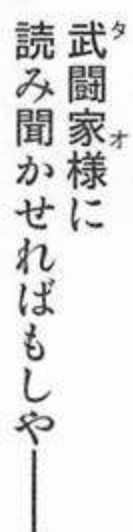 武闘家様に
読み聞かせればもしや――
タオ